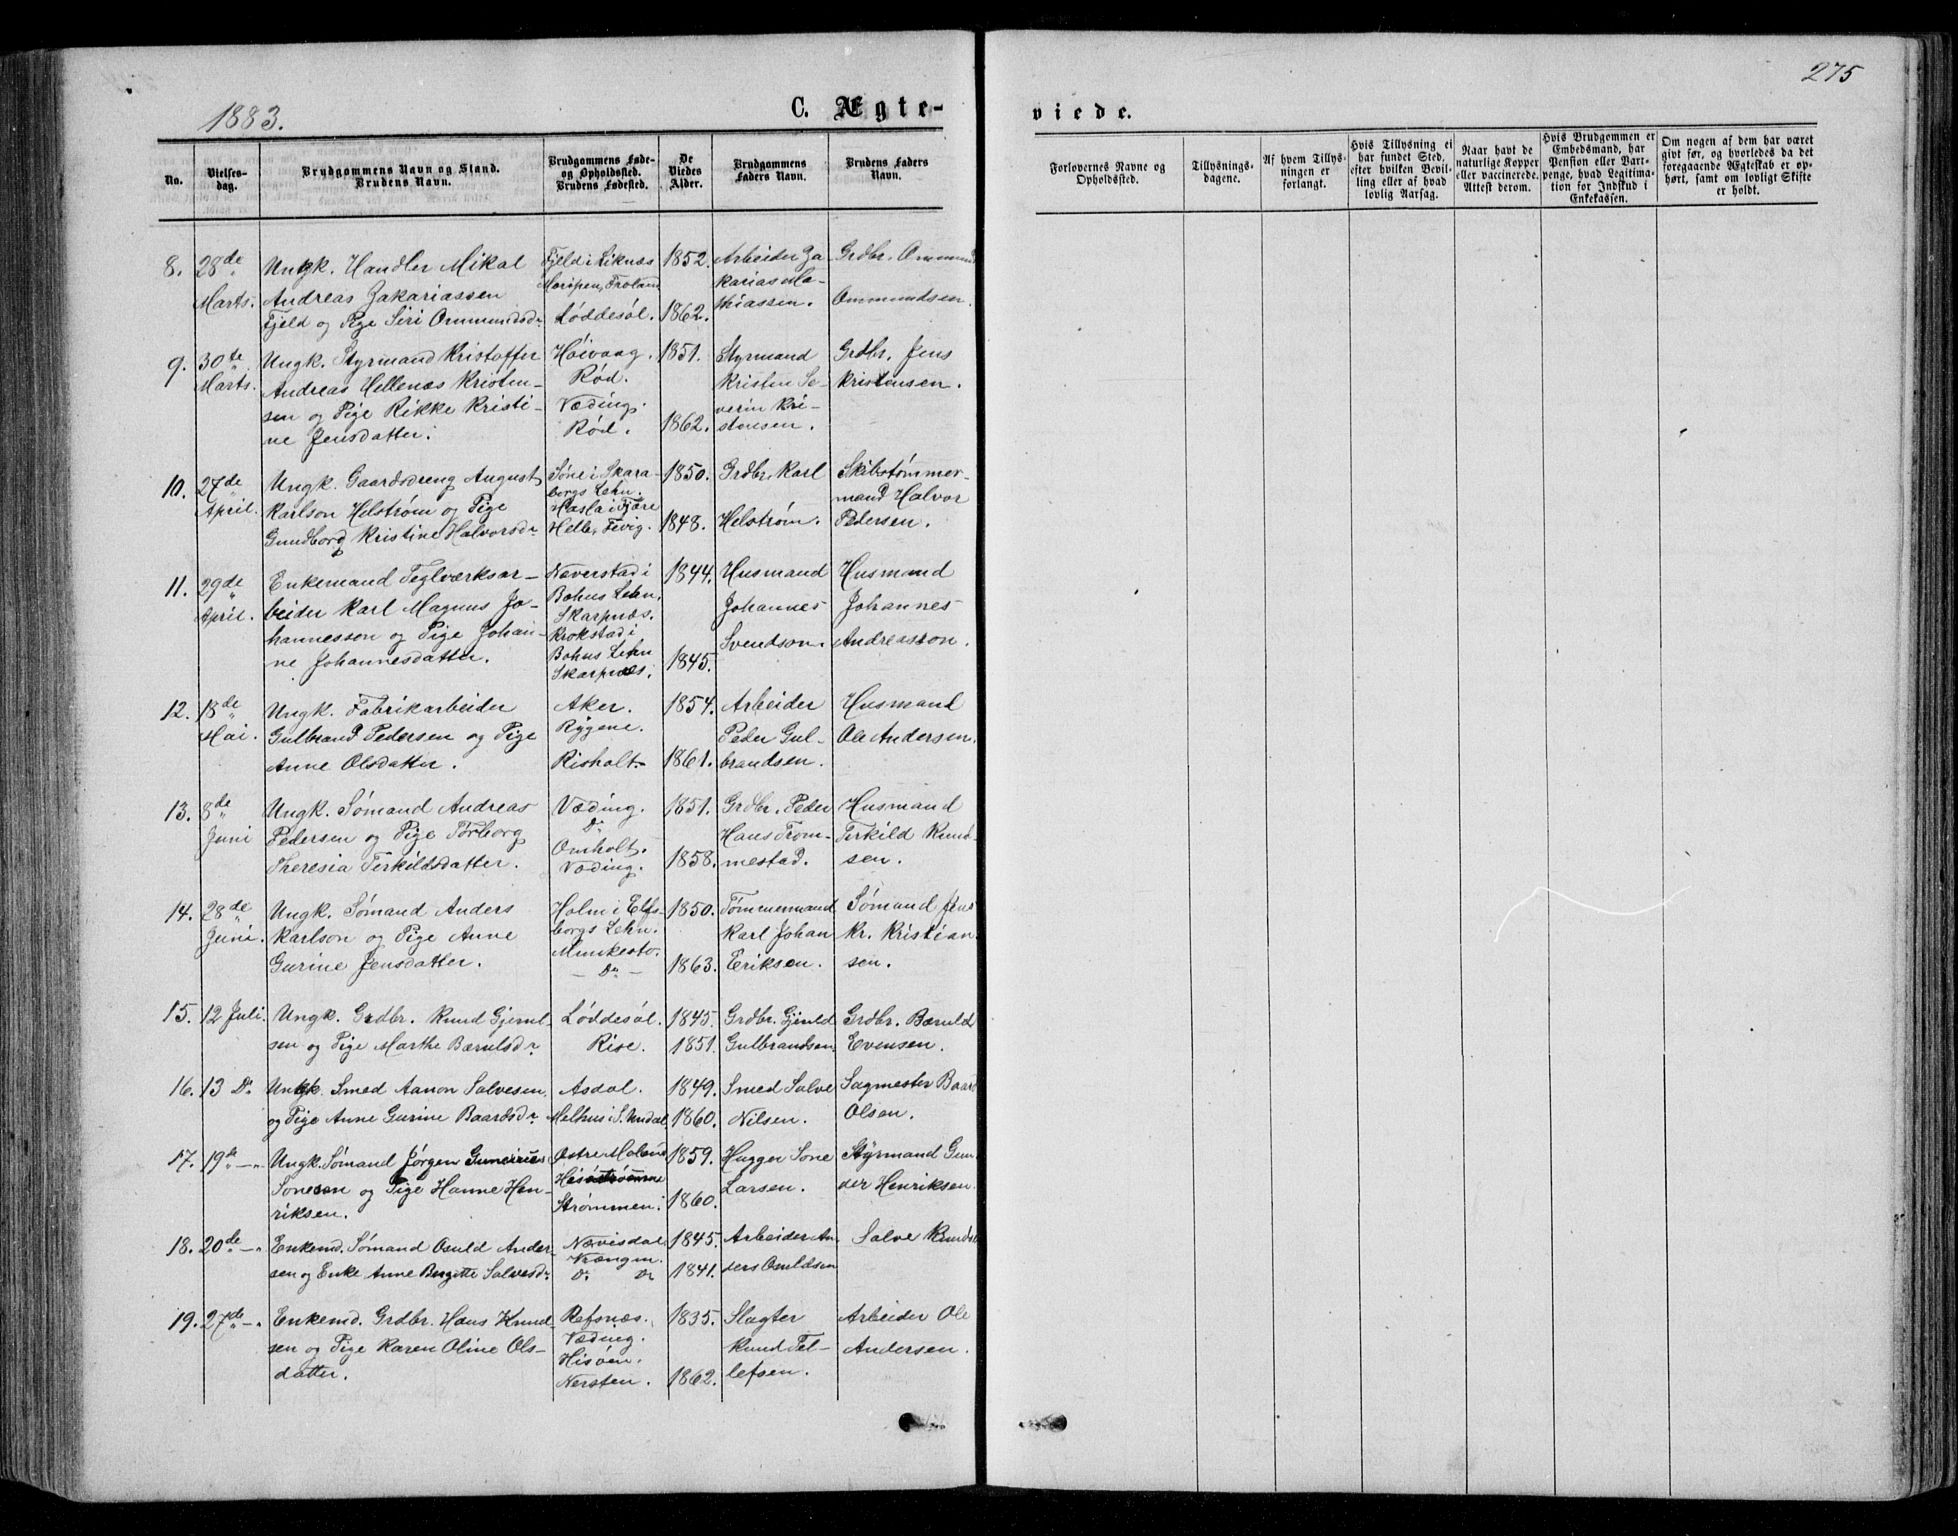 275
1883.
C. Ægte-
viede.
No.
Vielses-
dag.
Brudgommens Navn og Stand.
Brudens Navn.
Brudgommens Føde-
og Opholdssted.
Brudens Fødested.
De
Viedes
Alder.
Brudgommens
Faders Navn.
Brudens Faders
Navn.
Forlovernes Navne og
Opholdssted.
Tillysnings-
dagene.
Af hvem Tillys-
ningen er
forlangt.
Hvis Tillysning ei
har fundet Sted,
efter hvilken Bevil-
ling eller af hvad
lovlig Aarsag.
Naar havt de
naturlige Kopper
eller vaccinerede.
Attest derom.
Hvis Brudgommen er
Embedsmand, har
Pension eller Vart-
penge, hvad Legitima-
tion for Indskud i
Enkekassen.
Om nogen af dem har været
givt før, og hvorledes da det
foregaaende Ægteskab er op-
hørt, samt om lovligt Skifte
er holdt.
8. 28de Marts.
Ungk. Handler Mikal
Andreas Zakariassen
Fjeld og Pige Siri Ommundsdr
Fjeld i Liknæs
Moripen, Froland
Løddesøl.
1852.
1862.
Arbeider Za-
karias Ma-
thiassen.
Grdbr. Ommund
Ommundsen.
9. 30te Marts.
Ungk. Styrmand Kristoffer
Andreas Hellenæs Kristen-
sen og Pige Rikke Kristi-
ne Jensdatter.
Høivaag.
Rød.
Væding.
Rød.
1851.
1862.
Styrmand
Kristen Se-
verin Kri-
stensen.
Grdbr. Jens
Kristensen.
10. 27de April.
Ungk. Gaardsdreng August
Karlson Helstrøm og Pige
Gundborg Kristine Halvorsdr
Søne i Skara-
borgs Lehn.
Hasla i Fjære
Helle, Fevig.
1850.
1848.
Grdbr. Karl
Helstrøm.
Skibstømmer-
mand Halvor
Pedersen.
11. 29de April.
Enkemand Teglværksar-
beider Karl Magnus Jo-
hannesson og Pige Johan-
ne Johannesdatter.
Næverstad i
Bohus Lehn,
Skarpnæs.
Krokstad i
Bohus Lehn
Skarpnæs.
1844.
1845.
Husmand
Johannes
Svendson.
Husmand
Johannes
Andreasson.
12. 18de Mai.
Ungk. Fabrikarbeider
Gulbrand Pedersen og Pige
Anne Olsdatter.
Aker.
Rygene.
Risholt.
1854.
1861.
Arbeider
Peder Gul-
brandsen.
Husmand
Ole Andersen.
13. 8de Juni
Ungk. Sømand Andreas
Pedersen og Pige Torborg
Theresia Terkildsdatter.
Væding.
Do
Omholt.
Væding.
1851.
1858.
Grdbr. Peder
Hans Trom-
mestad.
Husmand
Terkild Knud-
sen.
14. 28de Juni.
Ungk. Sømand Anders
Karlson og Pige Anne
Gurine Jensdatter.
Holm i Elfs-
borgs Lehn.
Munkesto.
- Do -
1850.
1863.
Tømmermand
Karl Johan
Eriksen.
Sømand Jens
Kr. Kristian-
sen.
15. 12 Juli.
Ungk. Grdbr. Knud Gjerul-
sen og Pige Marthe Bærulsdr
Løddesøl.
Rise.
1845.
1851.
Grdbr. Gjeruld
Gulbrandsen.
Grdbr. Bæruld
Evensen.
16. 13 Do
Ungk. Smed Aanon Salvesen
og Pige Anne Gurine Baardsdr.
Asdal.
Melhus i S. Undal.
1849.
1860.
Smed Salve
Nilsen.
Sagmester Baard
Olsen.
17. 19de - "
Ungk. Sømand Jørgen
Sonesen og Pige Hanne Hen-
riksen.
Østre Moland
Strømmen.
1859.
1860.
Hugger Sone
Larsen.
Styrmand Gun-
der Henriksen.
18. 20de - "
Enkemd. Sømand Osuld Ander-
sen og Enke Anne Birgitte Salvesdr.
Nævisdal
Vrængen.
Do Do
1845.
1841.
Arbeider An-
ders Osuldsen
Salve Knuds
19. 27de - "
Enkemd. Grdbr. Hans Knud-
sen og Pige Karen Oline Ols-
datter.
Refsnæs.
Væding.
Hisøen.
Nersten.
1835.
1862.
Slagter
Knud Tel-
lefsen.
Arbeider Ole
Andersen.